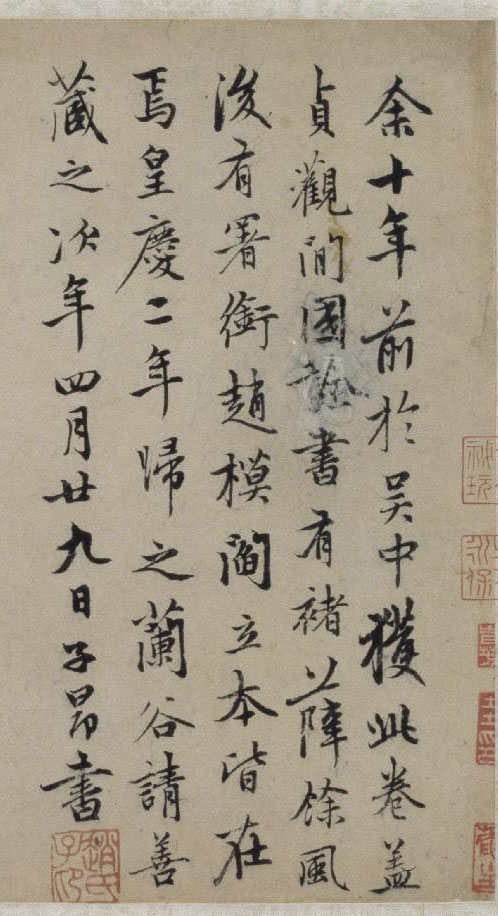 余十年前於吴中獲此卷蓋
貞觀間國詮書有褚薛餘風
後有署銜趙模閻立本皆在
焉皇慶二年歸之蘭谷請善
藏之次年四月廿九日子昂書
趙氏子昂